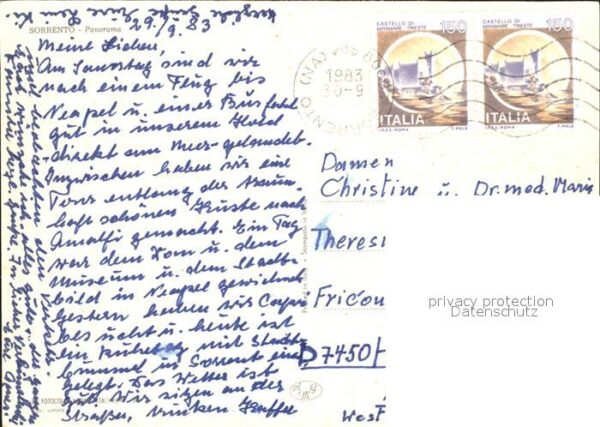 Herzliche Grüße Eure
SORRENTO - Panorama
29/9.83
Meine Lieben,
Am Samstag sind wir
nach einem Flug bis
Neapel u. einer Busfahrt
gut in unserem Hotel
direkt am Meer gelandet.
Inzwischen haben wir eine
Tour entlang der traum-
haft schönen Küste nach
Amalfi gemacht. Ein Tag
war dem Dom u. dem
Museum u. dem Stadt-
bild in Neapel gewidmet
gestern haben wir Capri
besucht u. heute ist
ein Ruhetag mit Stadt-
bummel in Sorrento ein-
gelegt. Das Wetter ist
gut. Wir sitzen an der
Straße, trinken Kaffee
CASTELLO DI
MIRAMARE TRIESTE
150
ITALIA
I.P.Z.S.-ROMA
T. MELE
CASTELLO DI
MIRAMARE TRIESTE
150
ITALIA
I.P.Z.S.-ROMA
T. MELE
SORRENTO (NA)
1983
30-9
Damen
Christine u. Dr. med. Maria
Theresi
Fricou
D7450/
West
privacy protection
Datenschutz